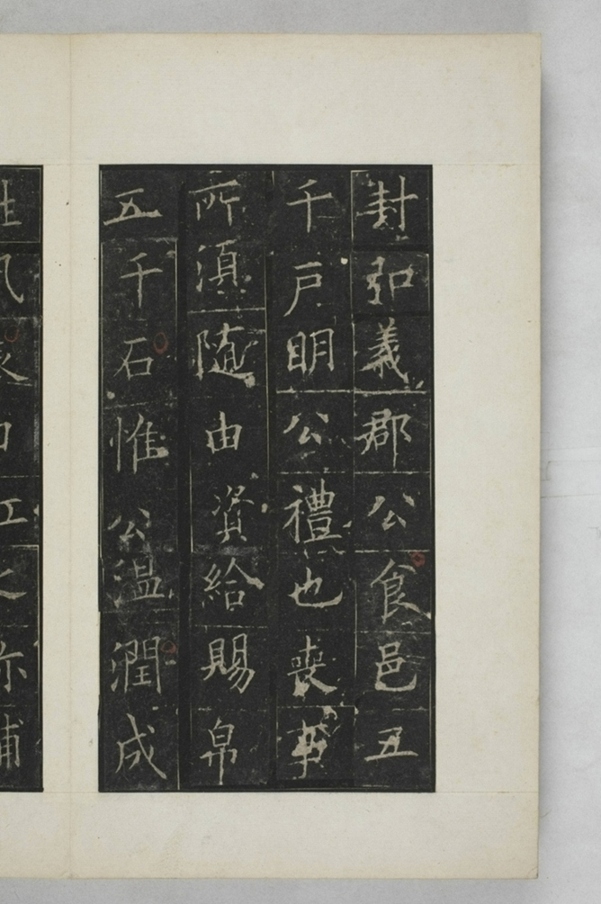 封弘義郡公食邑五
千戶明公禮也喪事
所湏隨由資給賜帛
五千石惟公温潤成